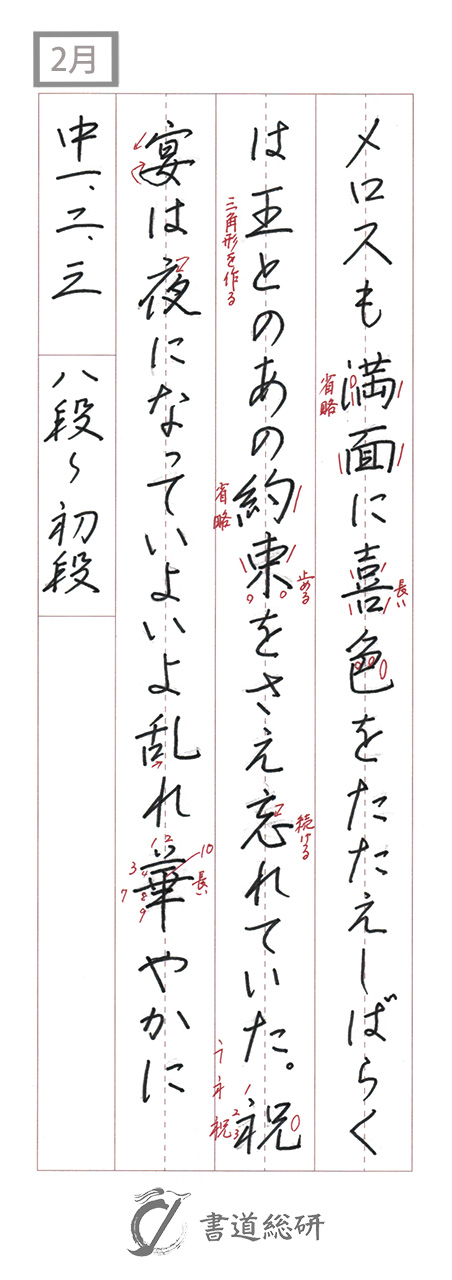 2月
メロスも満面に喜色をたたえしばらく
省略
長い
は王とのあの約束をさえ忘れていた。祝
三角形を作る
省略
止める
続ける
ラ ネ 祝
2
3
宴は夜になっていよいよ乱れ華やかに
1 2
3 4
7 8
9
10
長い
中一、二、三 八段〜初段
書道総研